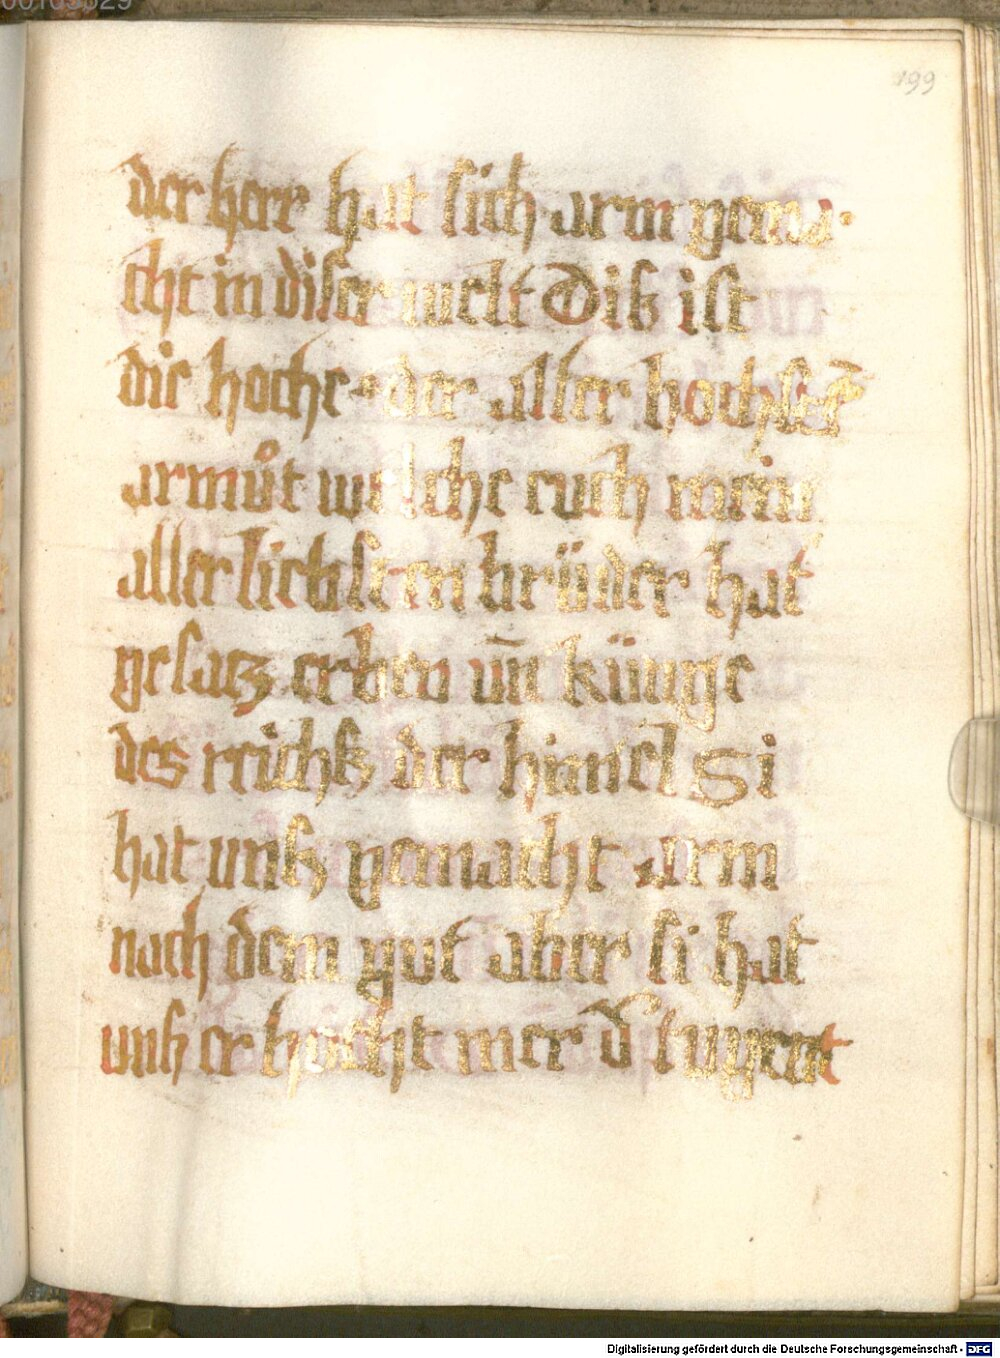 199
der herr hat sich arm gema·
cht in diser welt Diß ist
die hoche der aller hochstē
armůt welche euch mein
aller liebsten brüder hat
gesatz erben vn̄ künge
des reichß der himel Si
hat unß gemacht arm
nach dem gut aber si hat
unß er höcht mer d̕ tugent
Digitalisierung gefördert durch die Deutsche Forschungsgemeinschaft - DFG